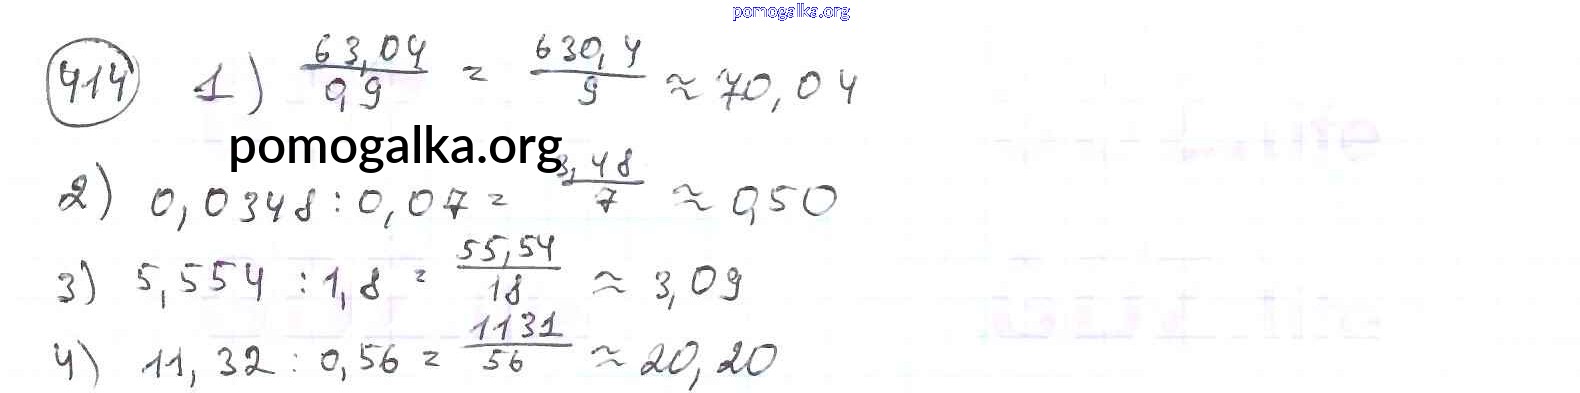 pomogalka.org
414 1) 63,04 / 0,9 = 630,4 / 9 ≈ 70,04
pomogalka.org
2) 0,0348 : 0,07 = 3,48 / 7 ≈ 0,50
3) 5,554 : 1,8 = 55,54 / 18 ≈ 3,09
4) 11,32 : 0,56 = 1131 / 56 ≈ 20,20